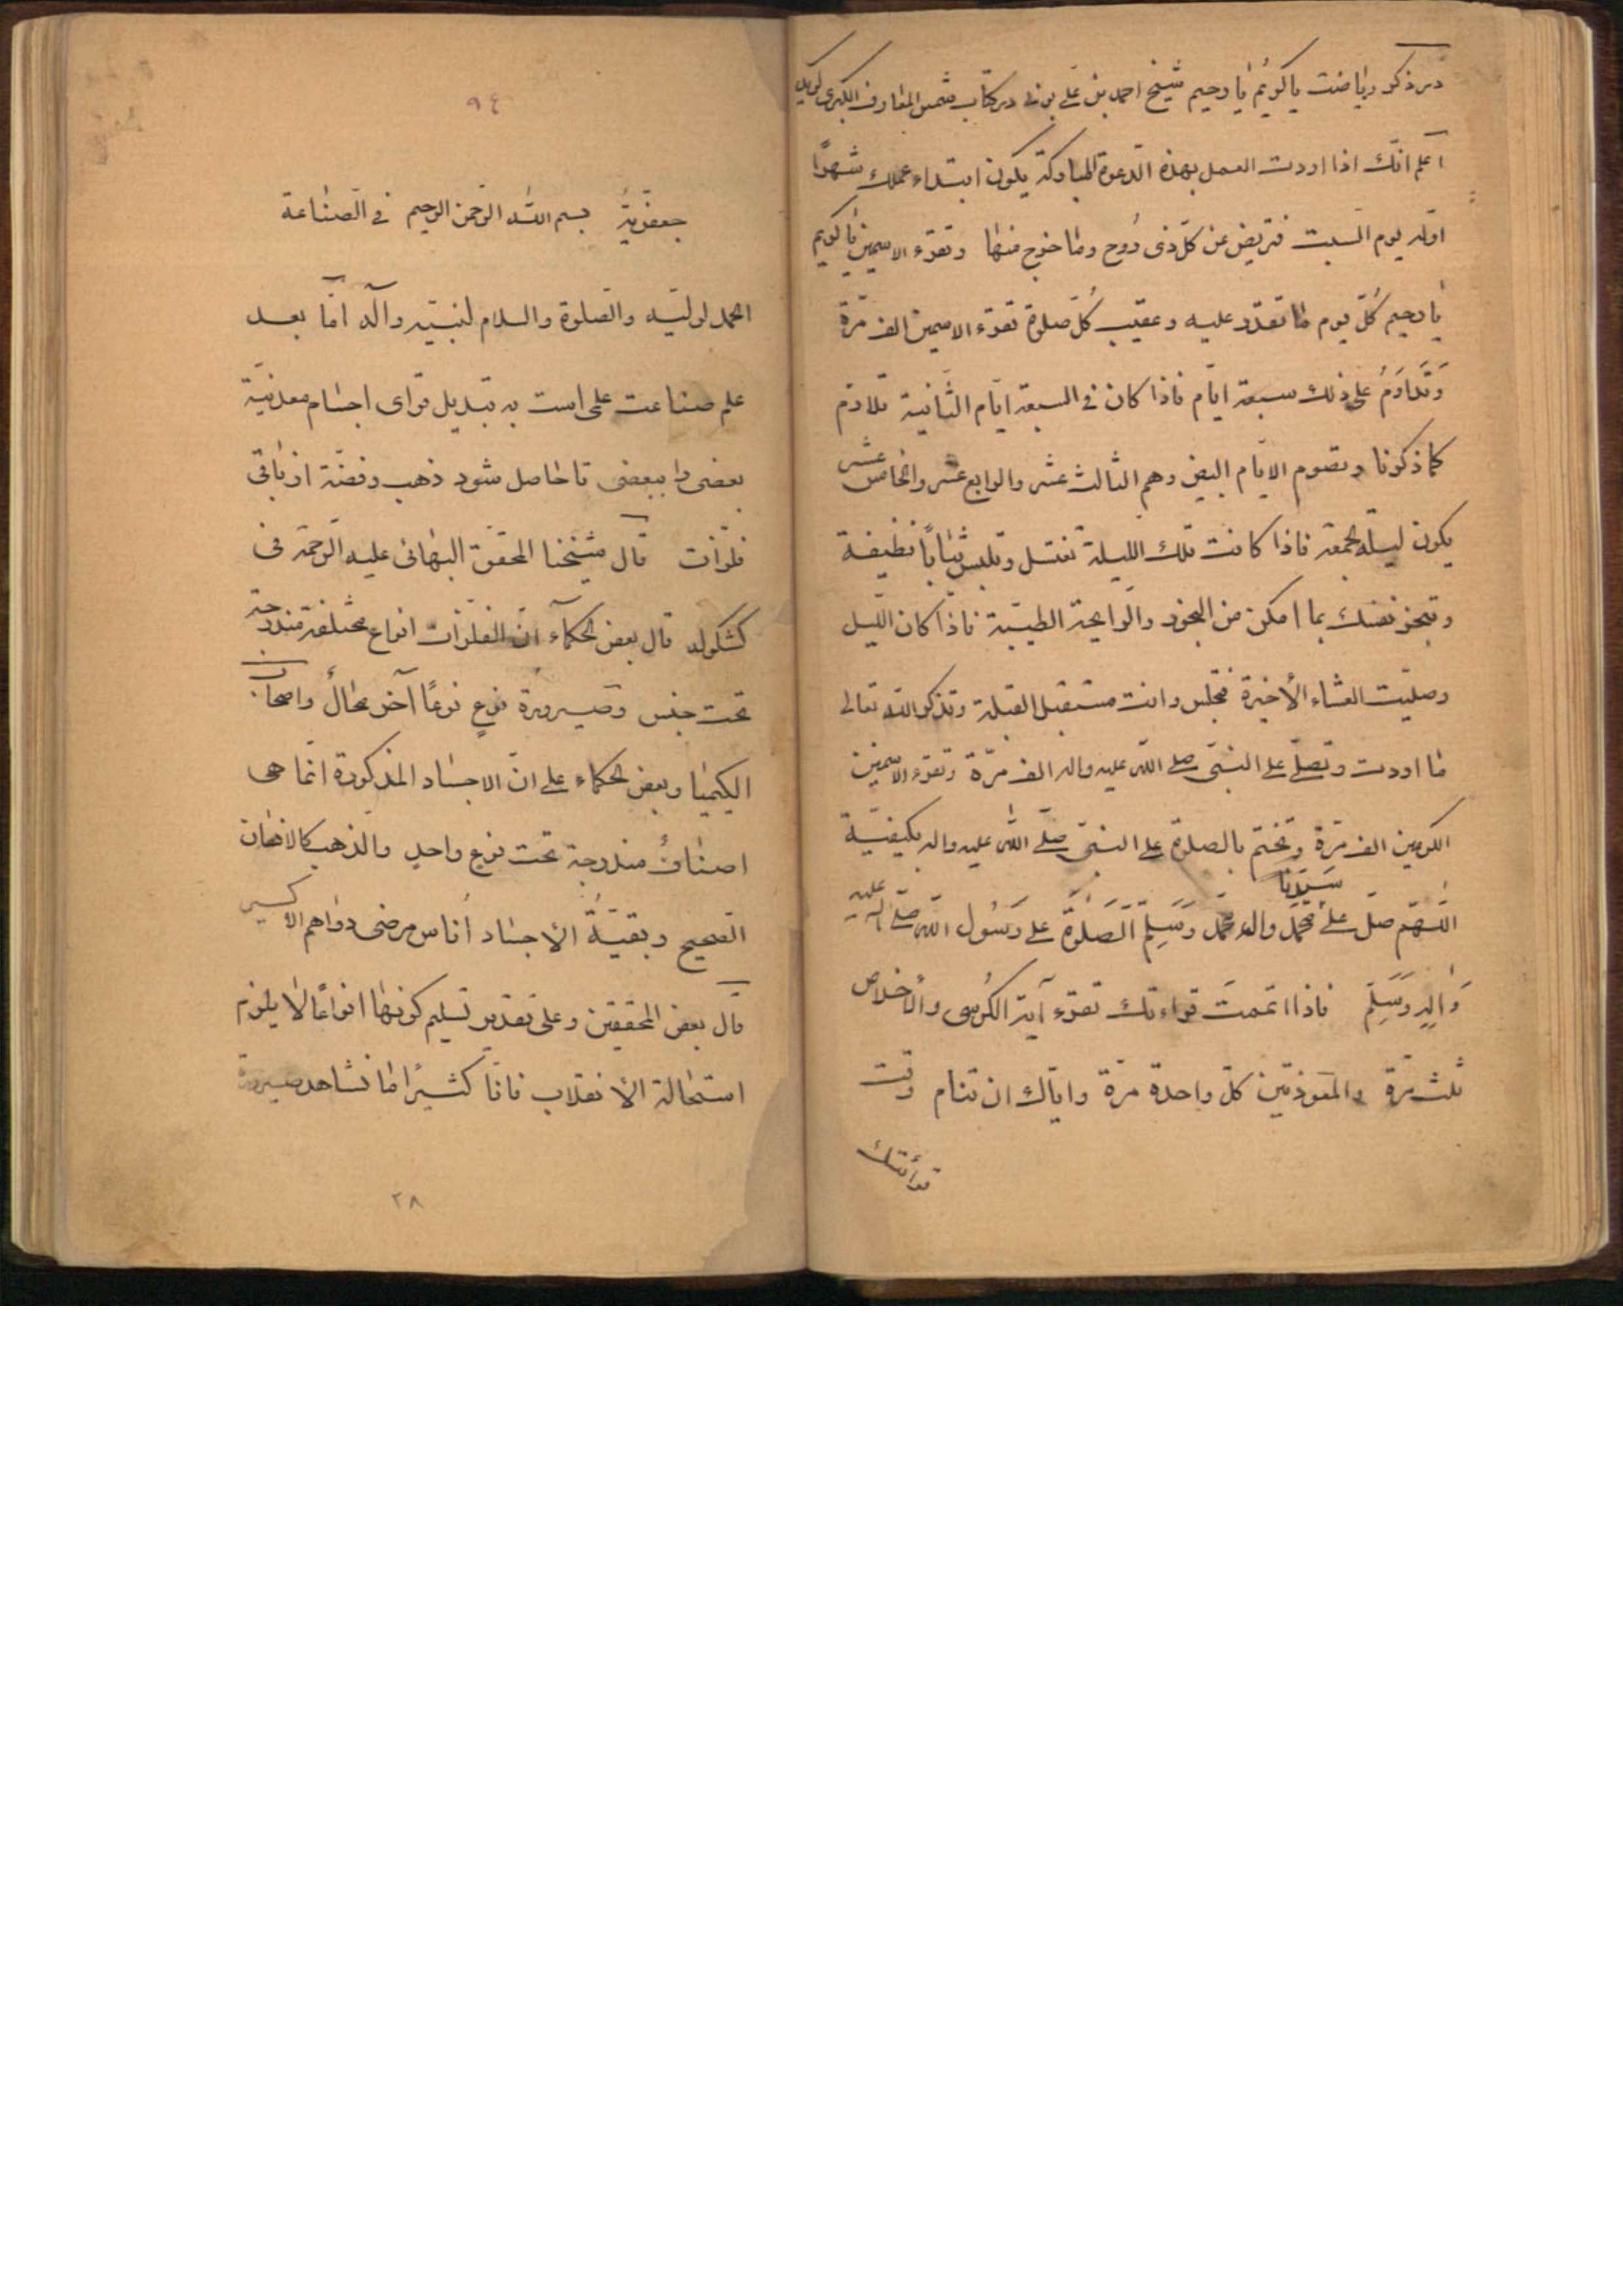 در ذکر ریاضت یا کریم یا رحیم شیخ احمد بن علی بونی در کتاب شمس المعارف الکبری گوید
اعلم انّک اذا اردت العمل بهذه الدعوة المبارکة یکون ابتداء عملک شهرًا
اوّله یوم السبت فتریض عن کلّ ذی رُوح وما خرج منها وتقرء الاسمین یا کریم
یا رحیم کُلّ یوم ما تقدر علیه وعقیب کُلّ صلوة تقرء الاسمین الف مرّة
وَتُداوَمُ علی ذلک سبعة ایّام فاذا کان فی السبعة ایّام الثّانیة تلازم
کما ذکرنا وتصوم الایّام البیض وهم الثالث عشر والرابع عشر والخامس عشر
یکون لیلة الجمعة فاذا کانت تلک اللیلة تغتسل وتلبس ثیابًا نظیفة
وتبخر نفسک بما امکن من البخور والرایحة الطیّبة فاذا کان اللّیل
وصلّیت العشاء الأخیرة فتجلس وانت مستقبل القبلة وتذکر الله تعالی
ما اردت وتصلّی علی النبیّ صلی الله علیه واله الف مرّة وتقرء الاسمین
الکریمین الف مرّة وتختم بالصلوة علی النبیّ صلّی الله علیه واله بکیفیّة
اللّهمّ صلّ علی سَیّدنا محمّد واله محمّد وَسَلِّم الصَلوةَ علی رَسُول الله صلّی الله علیه
وَالِهِ وَسَلِّم فاذا اتممتَ قراءتک تقرء آیة الکُرسی والأخلاص
ثلث مرّة والمعوذتین کلّ واحدة مرّة وایّاک ان تنام وقت
قرأئتک
٩٤
جعفریة بسم الله الرّحمن الرحیم فی الصّناعة
الحمد لولیّه والصّلوة والسلام لنبیّه وآله امّا بعد
علم صناعت علمی است به تبدیل قوای اجسام معدنیّة
بعضی را ببعضی تا حاصل شود ذهب وفضّة از باقی
فلزّات قال شیخنا المحقق البهائی علیه الرّحمة فی
کشکوله قال بعض الحکمآء انّ الفلزّات انواع مختلفة مندرجة
تحت جنس وصیرورة نوعٍ نوعًا آخر محالٌ واصحاب
الکیمیا وبعض الحکماء علی انّ الاجساد المذکورة انّما هی
اصنافٌ مندرجة تحت نوع واحد والذهب کالانسان
الصحیح وبقیّةُ الأجساد اُناس مرضی دواهم الاکسیر
قال بعض المحققین وعلی تقدیر تسلیم کونها انواعًا لا یلزم
استحالة الأنقلاب فانّا کثیرًا ما نشاهد صیرورة
٢٨